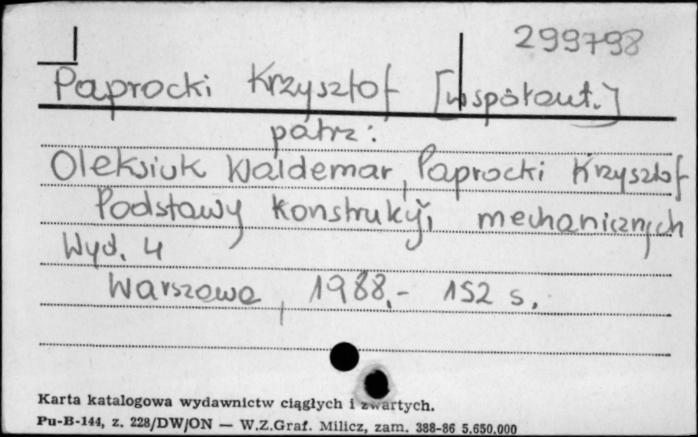 299798
Paprocki Krzysztof [współaut.]
patrz:
Oleksiuk Waldemar, Paprocki Krzysztof
Podstawy konstrukcji mechanicznych
Wyd. 4
Warszawa, 1988.- 152 s.
Karta katalogowa wydawnictw ciągłych i zwartych.
Pu-B-144, z. 228/DW/ON — W.Z.Graf. Milicz, zam. 388-86 5.650.000